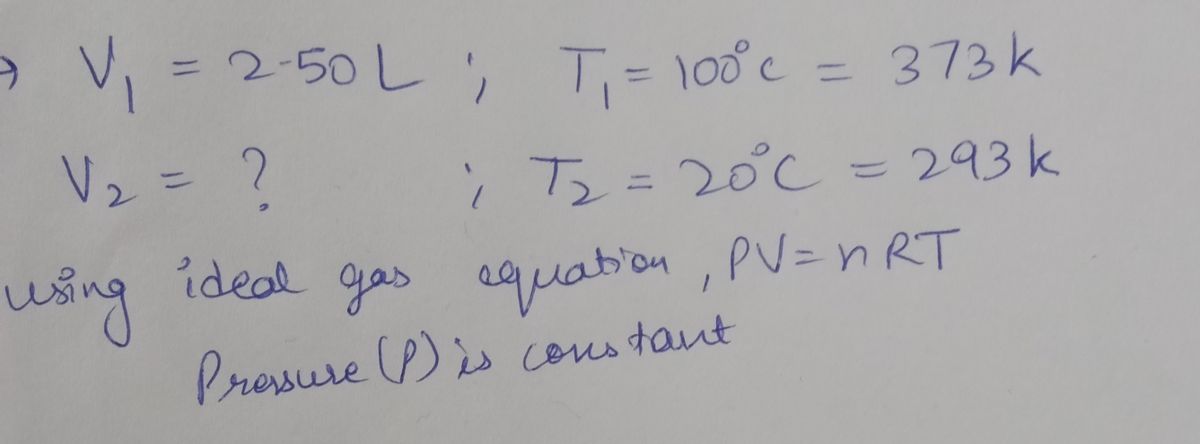 → V₁ = 2.50 L ; T₁ = 100°C = 373 k
V₂ = ? ; T₂ = 20°C = 293 k
using ideal gas equation, PV = nRT
Pressure (P) is constant